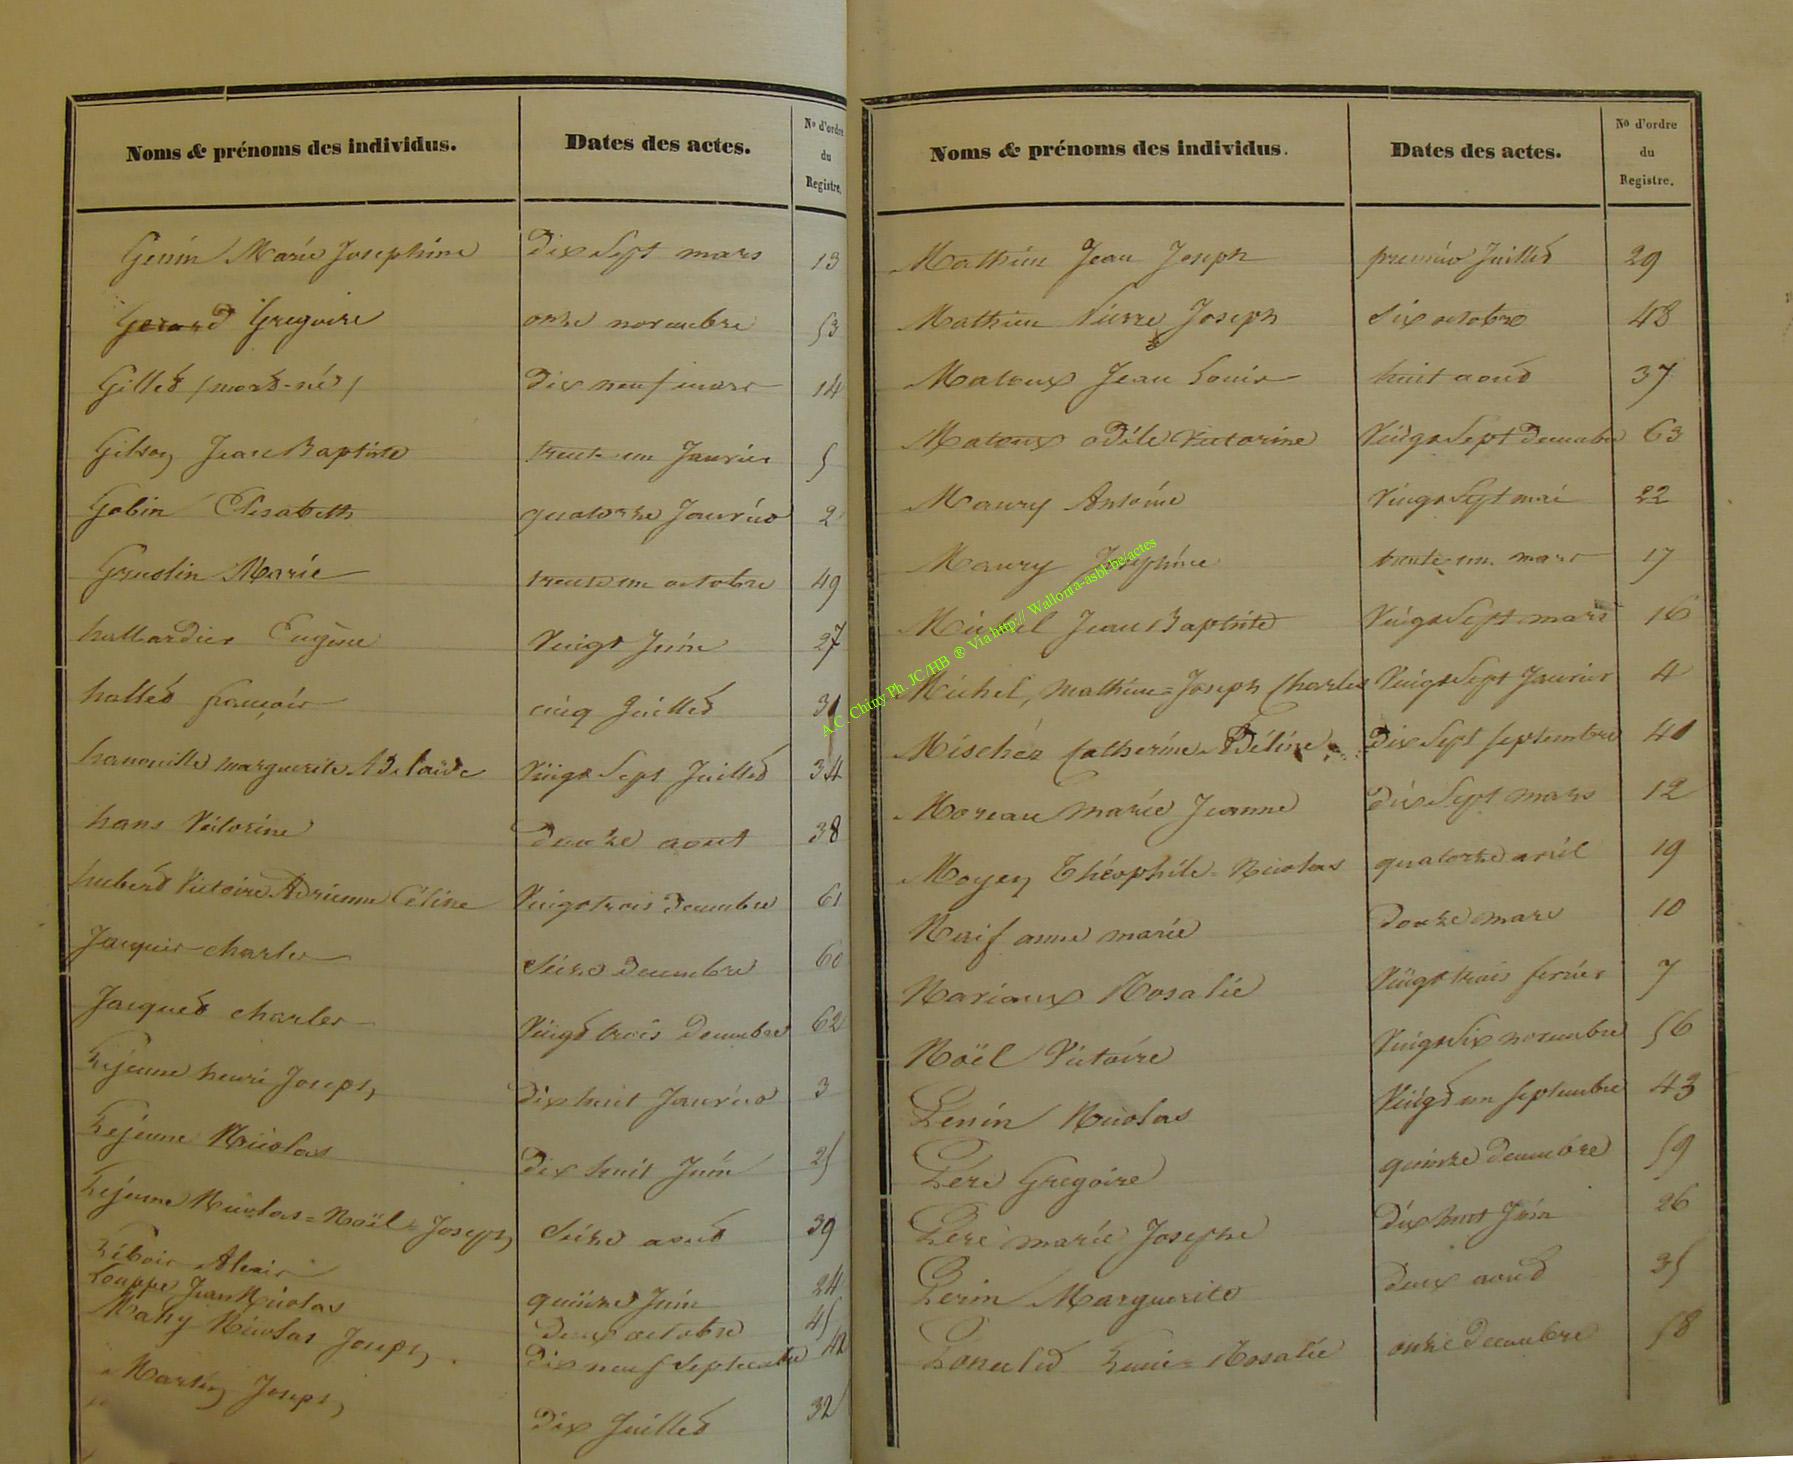 Noms & prénoms des individus. Dates des actes. No d'ordre du Registre.
Genin Marie Josephine Dix Sept mars 13
Gerard Gregoire onze novembre 53
Gilled / mord-né / Dix neuf mars 14
Gilson Jean Baptiste trente un Janvier 5
Gobin Elisabeth quatorze Janvier 2
Marie trente un octobre 49
hallardier Eugène Vingt Juin 27
halled françois cinq Juilled 31
hanouille marguerite Adelaïde Vingt Sept Juilled 34
hans Victorine Douze aout 38
huberd Victoire Adrienne Céline Vingt trois Decembre 61
Jacquis charles Seize Decembre 60
Jacqued charles Vingd trois Decembre 62
Lejeune henri Joseph Dix huit Janvier 3
Lejeune Nicolas Dix huit Juin 25
Lejeune Nicolas=Noël=Joseph Seize aoud 39
Alexis quinze Juin 24
Louppe Jean Nicolas Deux octobre 45
Mahy Nicolas Joseph Dix neuf Septembre 42
Martin Joseph Dix Juilled 32
Noms & prénoms des individus. Dates des actes. No d'ordre du Registre.
Mathieu Jean Joseph premier Juilled 29
Mathieu Pierre Joseph Six octobre 48
Matoux Jean Louis huit aoud 37
Matoux odile Victorine Vingt Sept Decembre 63
Maury Antoine Vingt Sept mai 22
Maury Josephine trente un mars 17
Michel Jean Baptiste Vingt Sept mars 16
Michel, Mathieu=Joseph Charles Vingt Sept Janvier 4
Catherine Adéline Dix Sept septembre 40
Moreau Marie Jeanne Dix Sept mars 12
Moyen Théophile=Nicolas quatorze avril 19
Naif anne marie Douze mars 10
Nariaux Rosalie Vingt trois fevrier 7
Noël Victoire Vingt Six novembre 56
Nicolas Vingd un septembre 43
Gregoire quinze decembre 59
marie Josephe Dix huit Juin 26
Marguerite Deux aoud 35
Lucie=Rosalie onze Decembre 58
A.C. Chiny Ph. JC/HB ® Via http:// Wallonia-asbl.be/actes